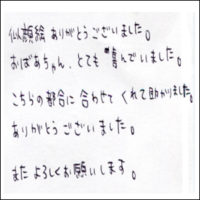 似顔絵 ありがとうございました。
おばあちゃん、とても 喜んでいました。
こちらの都合に 合わせて くれて助かりました。
ありがとうございました。
また よろしくお願いします。